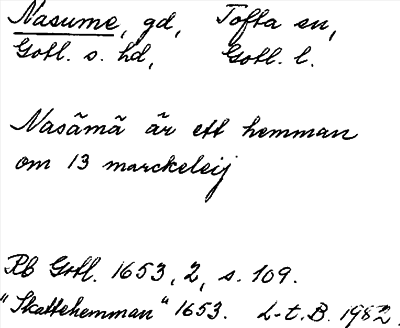 Nasume, gd, Tofta sn,
Gotl. s. hd, Gotl. l.
Nasãmã är ett hemman
om 13 marckeleij
Rb Gotl. 1653, 2, s. 109.
"Skattehemman" 1653. L-t. B. 1982.